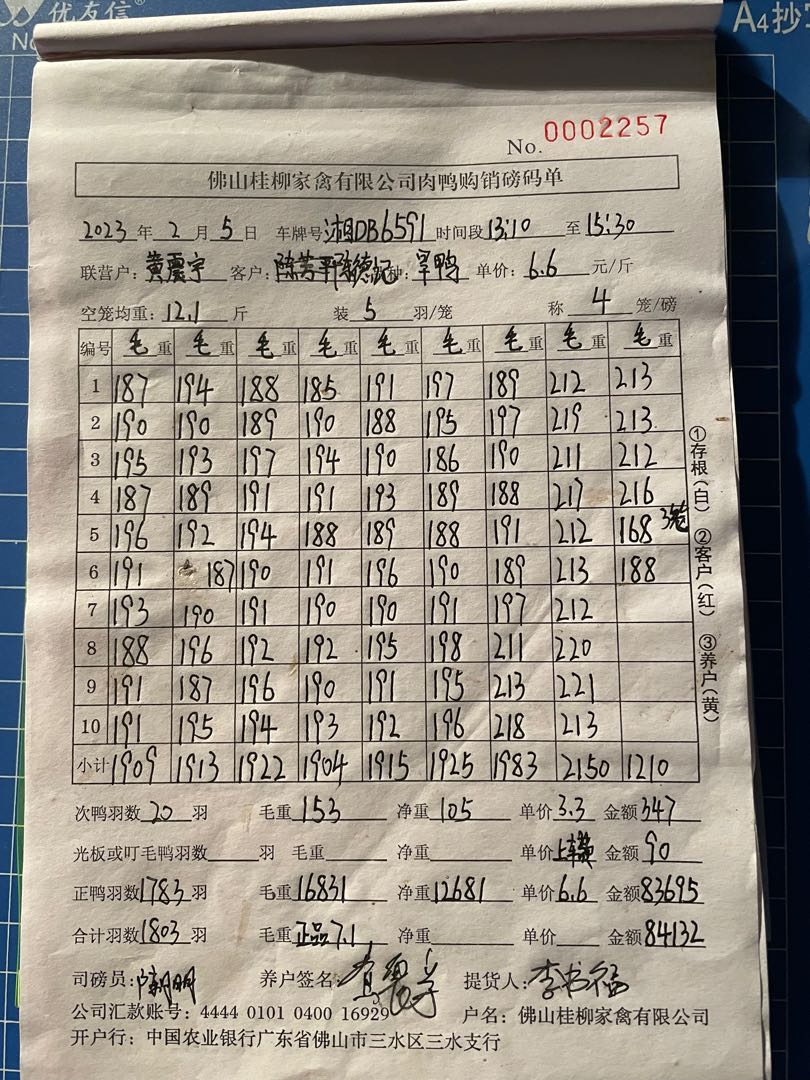 优友信
No
A4抄
No. 0002257
佛山桂柳家禽有限公司肉鸭购销磅码单
2023年2月5日 车牌号湘DB6591 时间段13:10至15:30
联营户:黄震宇 客户:陈芳平陈德记 种:旱鸭 单价:6.6元/斤
空笼均重:12.1斤 装5羽/笼 称4笼/磅
编号 毛重 毛重 毛重 毛重 毛重 毛重 毛重 毛重 毛重
1 187 194 188 185 191 197 189 212 213
2 190 190 189 190 188 195 197 219 213
3 195 193 197 194 190 186 190 211 212
4 187 189 191 191 193 189 188 217 216
5 196 192 194 188 189 188 191 212 168 3笼
6 191 187 190 191 196 190 189 213 188
7 193 190 191 190 190 191 197 212
8 188 196 192 192 195 198 211 220
9 191 187 196 190 191 195 213 221
10 191 195 194 193 192 196 218 213
小计 1909 1913 1922 1904 1915 1925 1983 2150 1210
①存根(白) ②客户(红) ③养户(黄)
次鸭羽数20羽 毛重153 净重105 单价3.3 金额347
光板或叮毛鸭羽数 羽 毛重 净重 单价上车费 金额90
正鸭羽数1783羽 毛重16831 净重12681 单价6.6 金额83695
合计羽数1803羽 毛重正品7.1 净重 单价 金额84132
司磅员: 养户签名: 提货人:李书福
公司汇款账号:4444 0101 0400 16929 户名:佛山桂柳家禽有限公司
开户行:中国农业银行广东省佛山市三水区三水支行